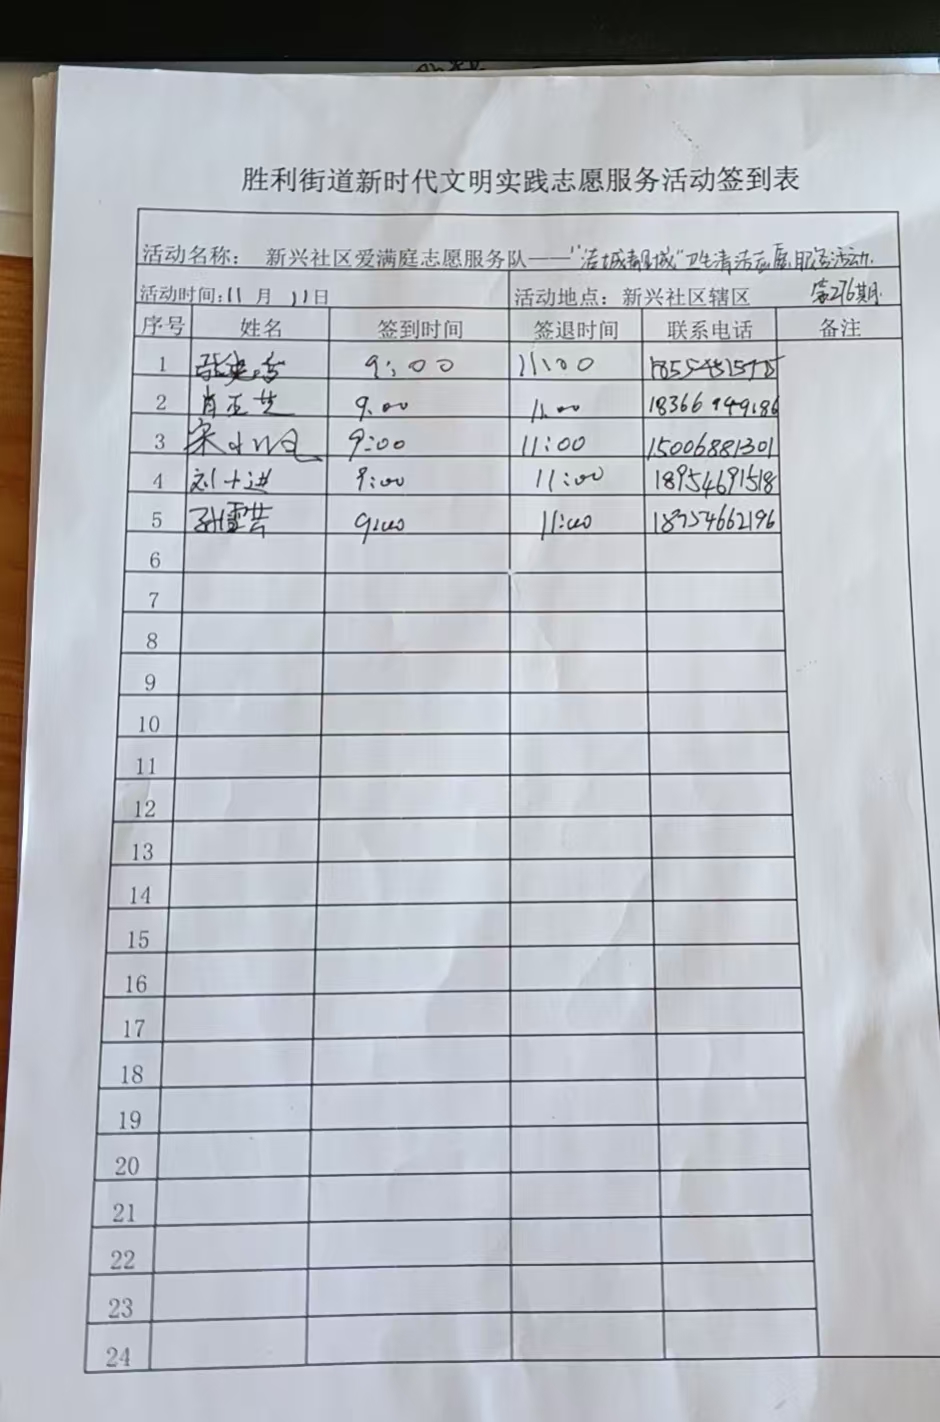 胜利街道新时代文明实践志愿服务活动签到表
活动名称： 新兴社区爱满庭志愿服务队——“洁城靓城”卫生清洁志愿服务活动.
活动时间:11月 11日 活动地点：新兴社区辖区 第276期.
序号 姓名 签到时间 签退时间 联系电话 备注
1 9:00 11:00
2 9.00 11.00 18366949186
3 宋 9:00 11:00 15006881301
4 刘十进 9:00 11:00 18954691518
5 孙雪芸 9:00 11:00 18754662196
6
7
8
9
10
11
12
13
14
15
16
17
18
19
20
21
22
23
24